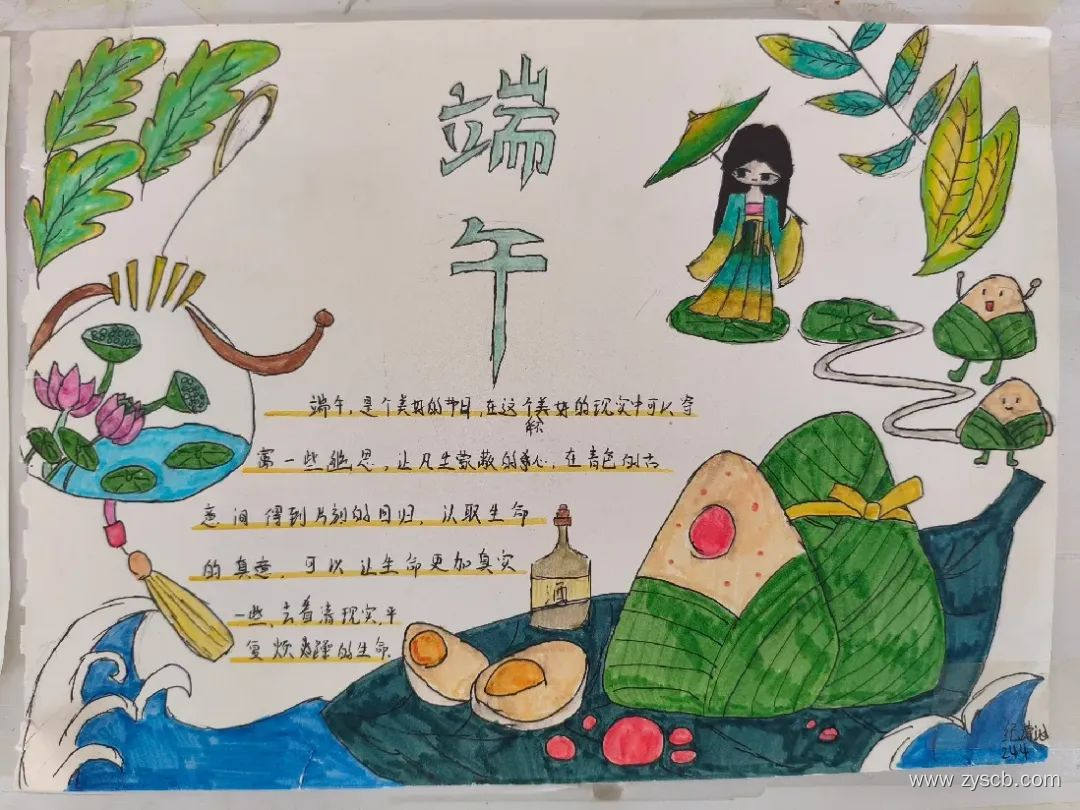 端
午
端午,是个美好的节日,在这个美好的现实中可以寄
寓一些 思,让凡生 的 心,在青色的古
意间得到片刻的回归,认取生命
的真意,可以让生命更加真实
一些,去看清现实,平
复烦 的生命
酒
244
www.zyscb.com